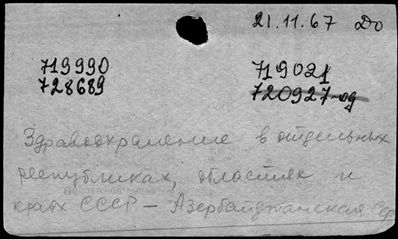 21.11.67 До
719990 719021
728689 720927-од
Здравоохранение в отдельных
республиках, областях и
краях СССР — Азербайджанская ССР